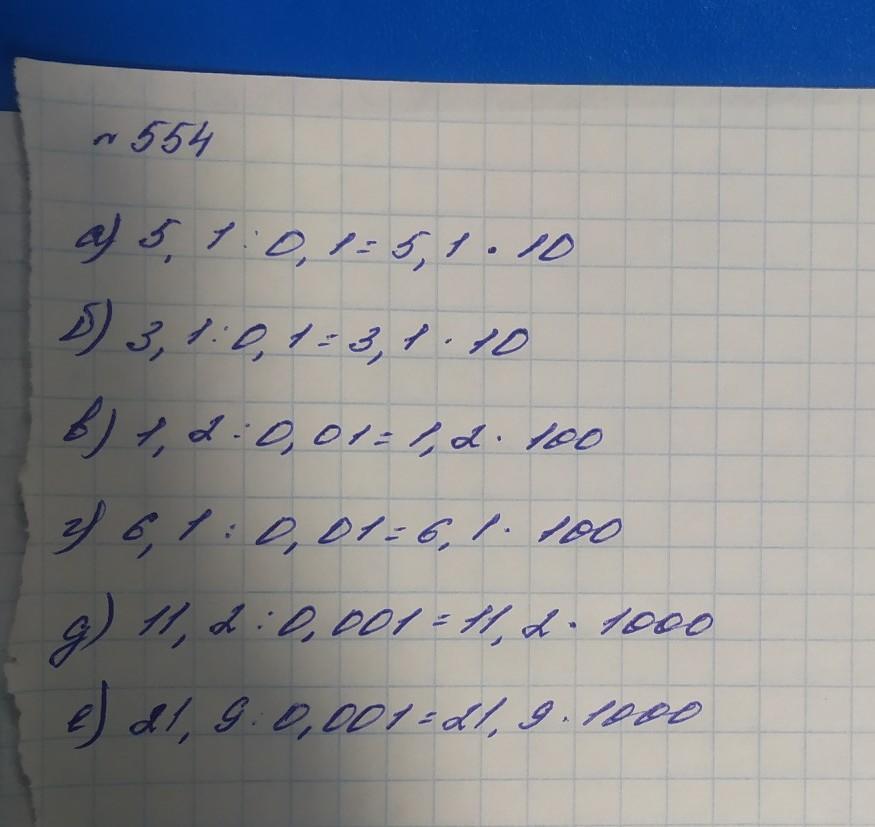 № 554
а) 5, 1 : 0, 1 = 5, 1 · 10
б) 3, 1 : 0, 1 = 3, 1 · 10
в) 1, 2 : 0, 01 = 1, 2 · 100
г) 6, 1 : 0, 01 = 6, 1 · 100
д) 11, 2 : 0, 001 = 11, 2 · 1000
е) 21, 9 : 0, 001 = 21, 9 · 1000